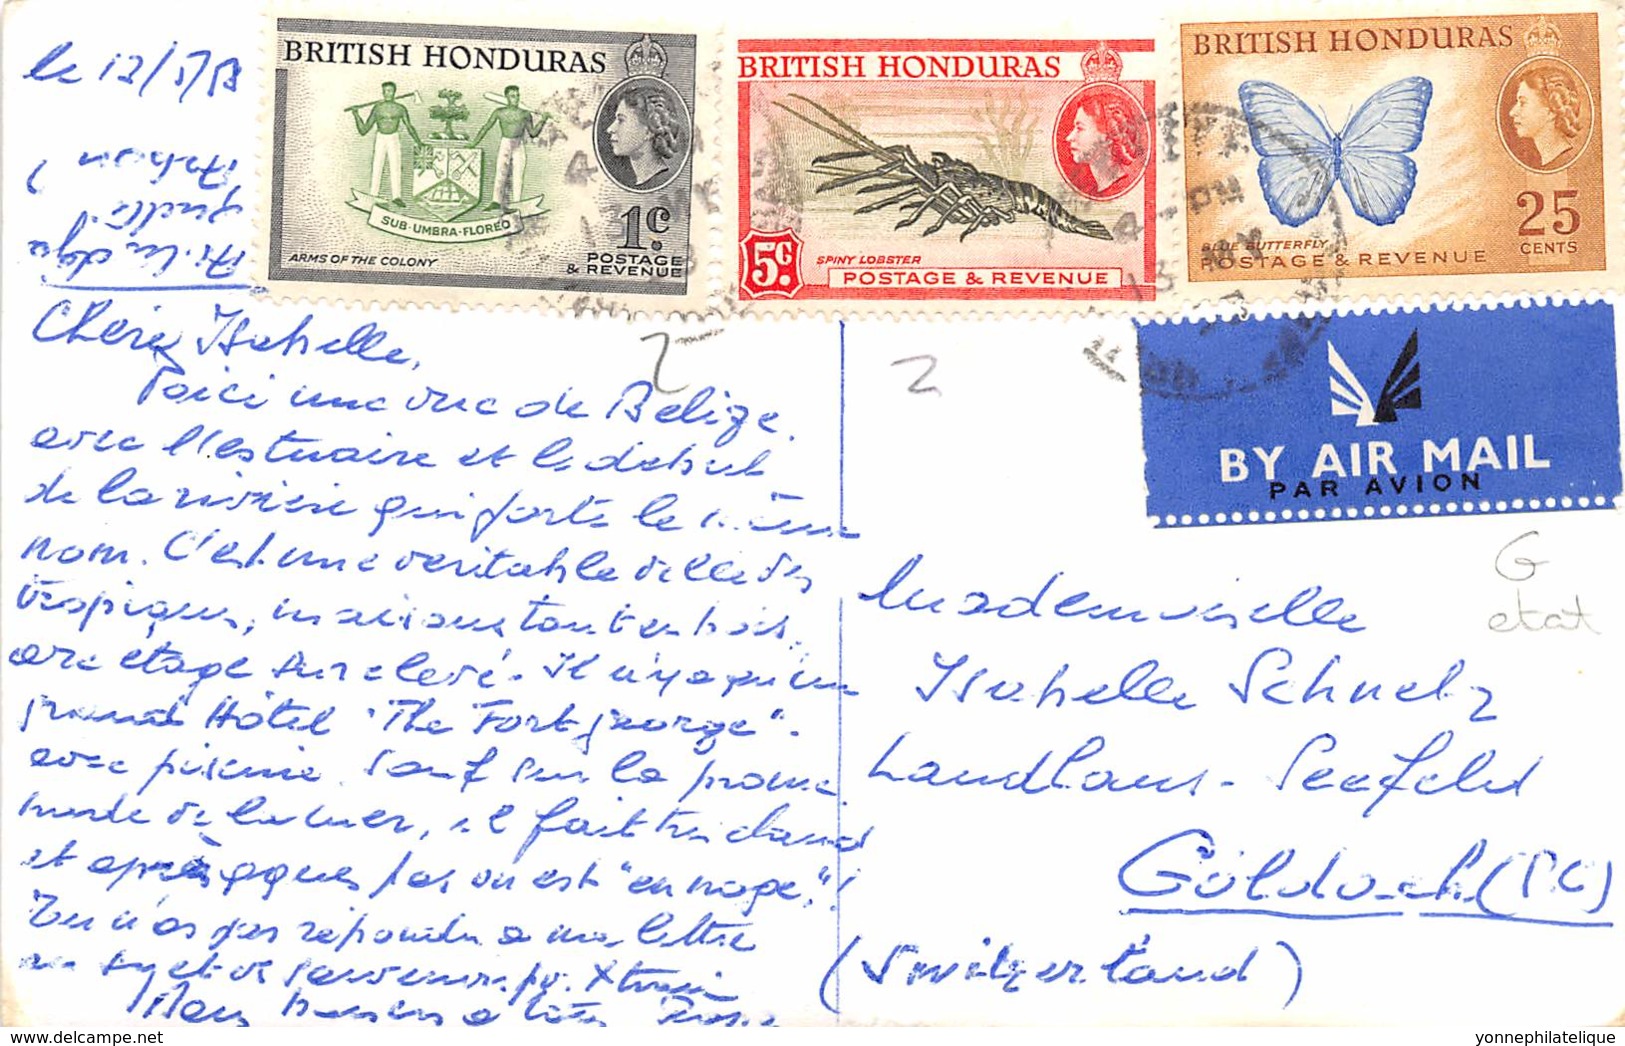 le 12/5/
BRITISH HONDURAS
SUB·UMBRA·FLOREO
ARMS OF THE COLONY
1c.
POSTAGE
& REVENUE
BRITISH HONDURAS
5c.
SPINY LOBSTER
POSTAGE & REVENUE
BRITISH HONDURAS
25
CENTS
BLUE BUTTERFLY
POSTAGE & REVENUE
4 - PM
13 MY
BY AIR MAIL
PAR AVION
G
etat
2
2
Chérie Isabelle,
Voici une vue de Belize
avec l'estuaire et le debut
de la rivière qui porte le même
nom. C'est une veritable ville des
tropiques, maisons tout en bois,
avec étage surelevé. Il n'y a qu'un
grand Hôtel "The Fort george".
avec piscine. Sauf sur la prome
nade de la mer, il fait très chaud
et après qques pas on est "en nage"!
Tu n'as pas répondu a ma lettre
au sujet de
Mademoiselle
Isabelle Schnelz
Landhaus - Seefeld
Goldach (SG)
(Switzerland)
yonnephilatelique